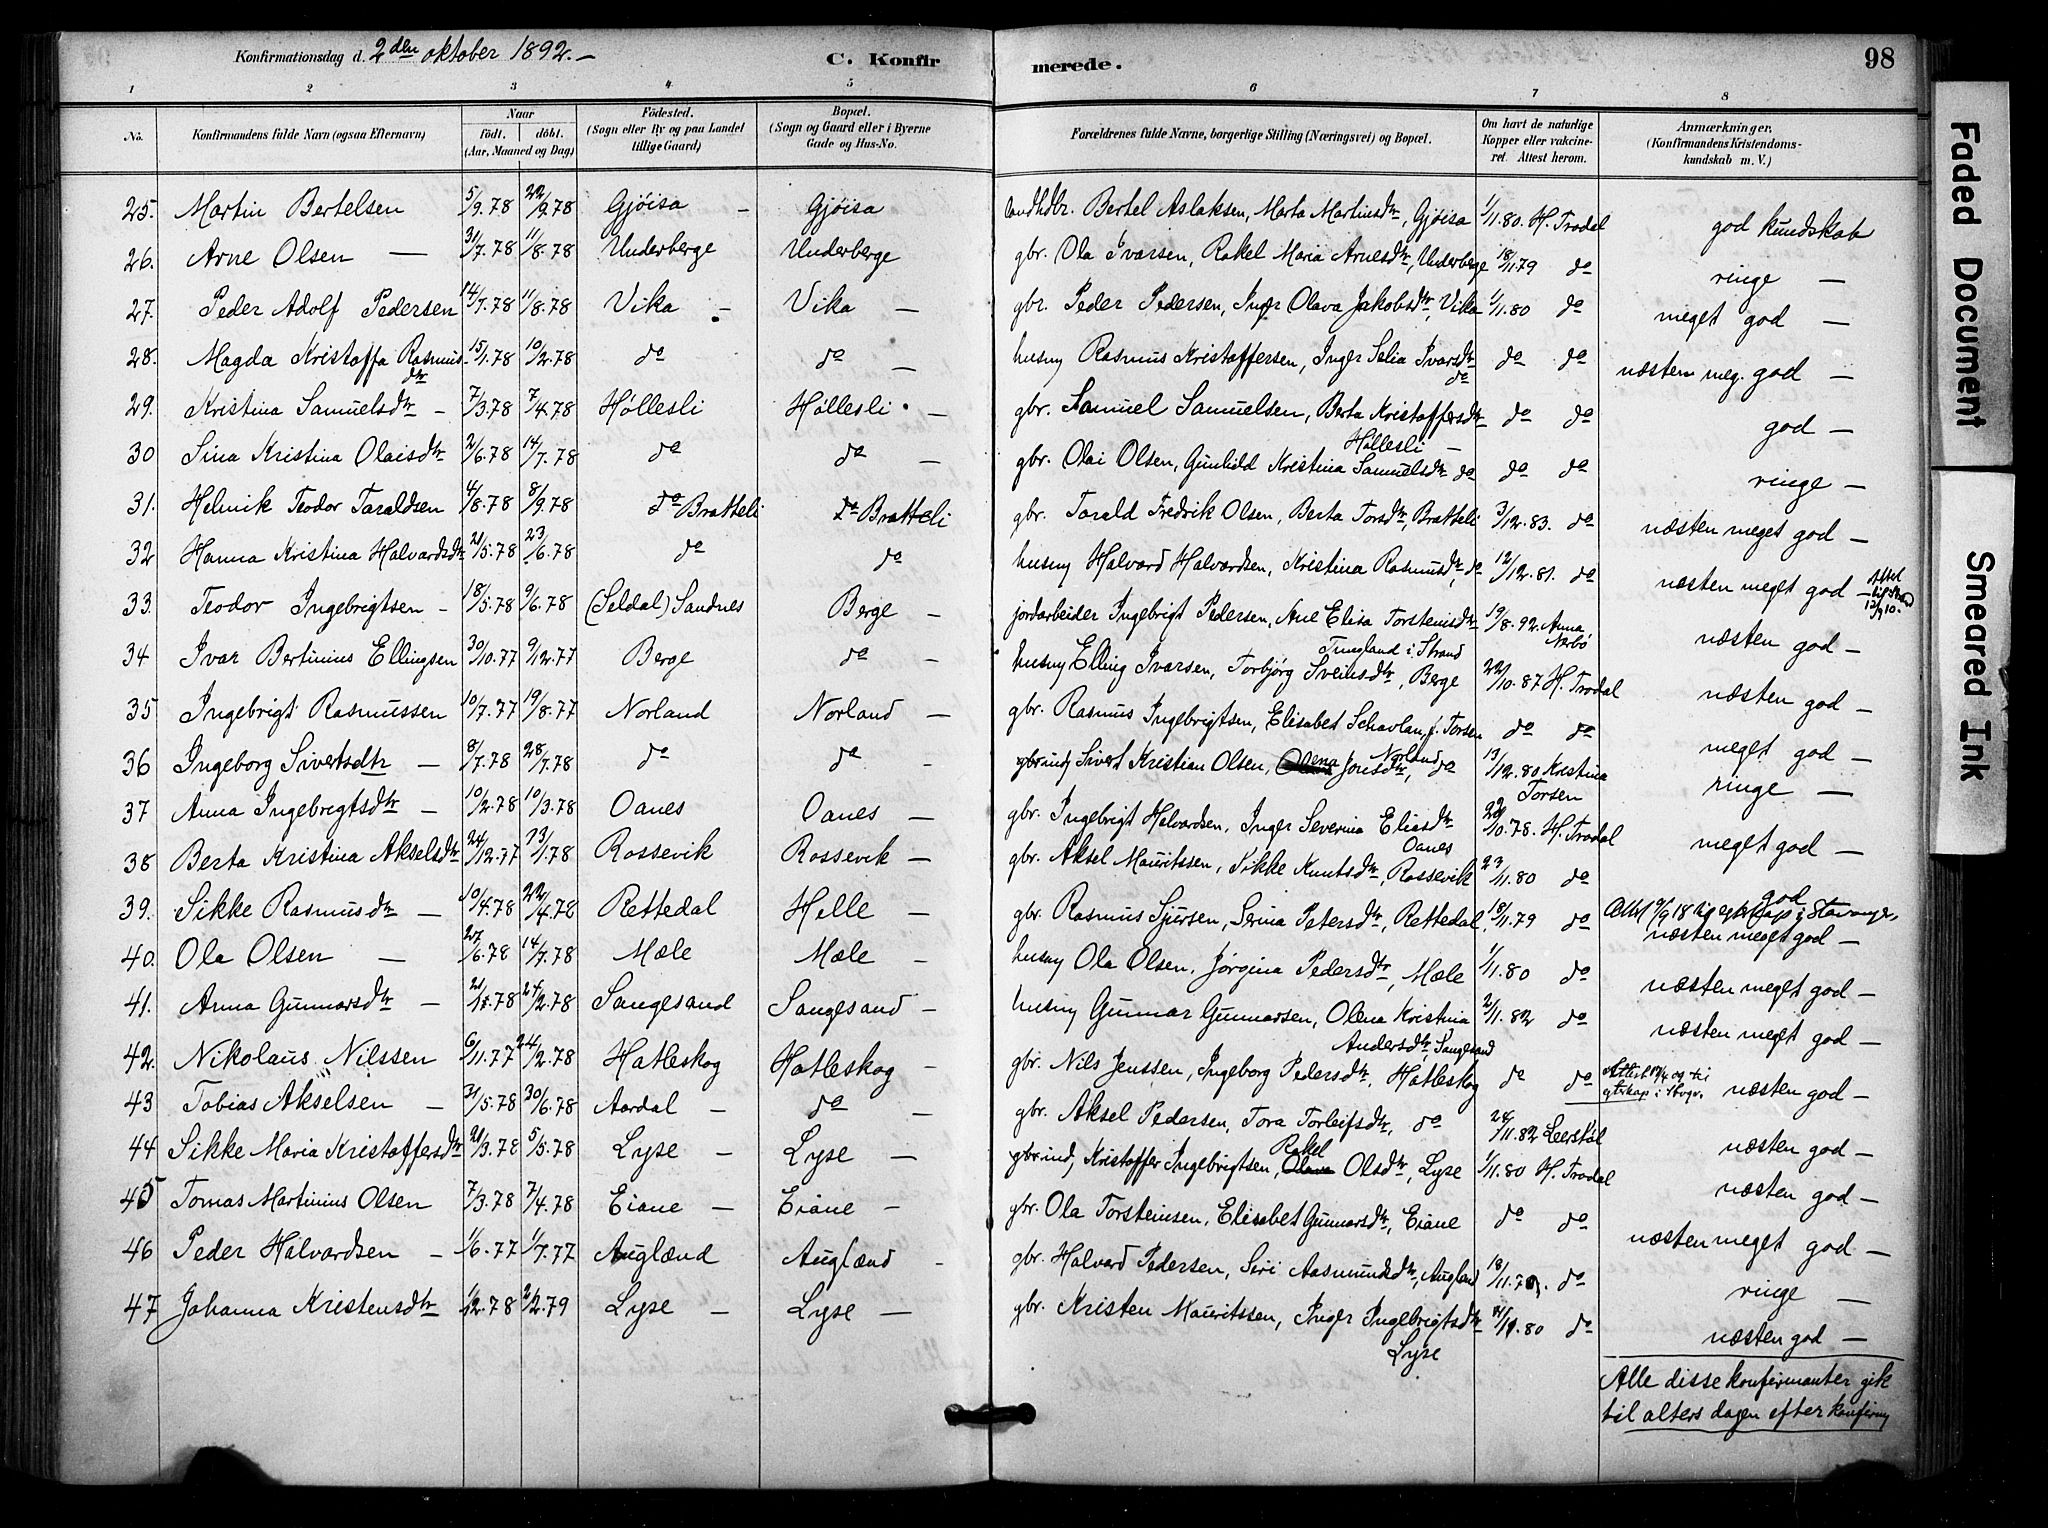 Konfirmationsdag d. 2den oktober 1892.–
C. Konfirmerede.
98
1 2 3 4 5 6 7 8
No. Konfirmandens fulde Navn (ogsaa Efternavn) Naar födt. döbt. (Aar, Maaned og Dag) Födested. (Sogn eller By og paa Landet tillige Gaard) Bopæl. (Sogn og Gaard eller i Byerne Gade og Hus-No. Forældrenes fulde Navne, borgerlige Stilling (Næringsvei) og Bopæl. Om havt de naturlige Kopper eller vakcineret. Attest herom. Anmærkninger. (Konfirmandens Kristendomskundskab m. V.)
25. Martin Bertelsen 5/9.78 22/9.78 Gjöisa – Gjöisa landhdbr. Bertel Aslaksen, Marta Martinsdtr, Gjöisa 1/11.80 H. Trodal god kundskab
26. Arne Olsen — 31/7.78 11/8.78 Underberge Underberge gbr. Ola Ivarsen, Rakel Maria Arnesdtr, Underberge 18/11 79 do ringe —
27. Peder Adolf Pedersen 14/7.78 11/8.78 Vika – Vika — gbr. Peder Pedersen, Inger Olava Jakobsdtr, Vika 1/11.80 do meget god —
28. Magda Kristoffa Rasmusdtr 15/1.78 10/2.78 do do — husmy Rasmus Kristoffersen, Inger Selia Ivarsdtr do do do næsten meg. god —
29. Kristina Samuelsdtr – 7/3.78 7/4.78 Höllesli Höllesli — gbr. Samuel Samuelsen, Berta Kristoffersdtr Höllesli — do do god —
30 Sina Kristina Olaisdtr 2/6.78 14/7.78 do do — gbr. Olai Olsen, Gunhild Kristina Samuelsdtr do do do ringe —
31. Helmik Teodor Taraldsen 4/8.78 8/9.78 do Bratteli do Bratteli gbr. Tarald Fredrik Olsen, Berta Torsdtr, Bratteli 3/12.83. do næsten meget god —
32 Hanna Kristina Halvardsdtr 21/5.78 23/6.78 do do husmy Halvard Halvardsen, Kristina Rasmusdtr, do 12/12.81. do næsten meget god —
33. Teodor Ingebrigtsen – 18/5.78 9/6.78 (Seldal) Sandnes Berge – jordarbeider Ingebrigt Pedersen, Ane Elisa Torsteinsdtr Tungland i Strand 19/8.92. Anna Nerbö næsten god —
34 Ivar Bertinius Ellingsen 30/10.77 9/12.77 Berge do – husmy Elling Ivarsen, Torbjörg Sveinsdtr, Berge 22/10.87 H. Trodal næsten god —
35 Ingebrigt Rasmussen 10/7.77 19/8.77 Norland Norland — gbr. Rasmus Ingebrigtsen, Elisabet Schavlan, f. Torsen Norland do do meget god —
36 Ingeborg Sivertsdtr — 8/7.78 28/7.78 do do – gbrind, Sivert Kristian Olsen, Olena Jonsdtr, do 13/12.80 Kristina Torsen ringe —
37 Anna Ingebrigtsdtr — 10/2.78 10/3.78 Oanes Oanes — gbr. Ingebrigt Halvardsen, Inger Severina Eliasdtr Oanes 22/10.78. H. Trodal meget god —
38 Berta Kristina Akselsdtr 24/12.77 13/1.78 Rossevik Rossevik — gbr. Aksel Mauritssen, Sikke Knutsdtr, Rossevik 23/11.80 do god
39. Sikke Rasmusdtr — 10/4.78 22/4.78 Rettedal Helle — gbr. Rasmus Sjursen, Serina Petersdtr, Rettedal 18/11.79 do næsten meget god —
40. Ola Olsen — 27/6.78 14/7.78 Mæle Mæle – husmy Ola Olsen, Jörgina Pedersdtr, Mæle 1/11.80 do næsten meget god —
41. Anna Gunnarsdtr — 21/1.78 24/2.78 Sangesand Sangesand – husmy Gunnar Gunnarsen, Olena Kristina Andersdtr, Sangesand 2/11.82 do næsten meget god —
42. Nikolaus Nilssen 6/11.77 24/2.78 Hatleskog Hatleskog – gbr. Nils Jenssen, Ingeborg Pedersdtr, Hatleskog do do næsten god —
43 Tobias Akselsen – 31/5.78 30/6.78 Aardal – do – gbr. Aksel Pedersen, Tora Torleifsdtr, do 24/11.82 næsten god —
44 Sikke Maria Kristoffersdtr 21/3.78 5/5.78 Lyse — Lyse — gbrind, Kristoffer Ingebrigtsen, Rakel Olsdtr, Lyse 1/11.80 H. Trodal næsten god —
45 Tomas Martinius Olsen 7/3.78 7/4.78 Eiane — Eiane – gbr. Ola Torsteinsen, Elisabet Gunnarsdtr, Eiane do do næsten meget god —
46 Peder Halvardsen – 1/6.77 1/7.77 Auglænd Auglænd – gbr. Halvard Pedersen, Siri Aasmundsdtr, Augland 18/11.79. do ringe —
47 Johanna Kristensdtr 1/12.78 2/2.79 Lyse — Lyse — gbr. Kristen Mauritssen, Inger Ingebrigtsdtr Lyse 11/11.80 do næsten god —
Alle disse konfirmanter gik
til alters dagen efter konfirmy
Faded Document
Smeared Ink